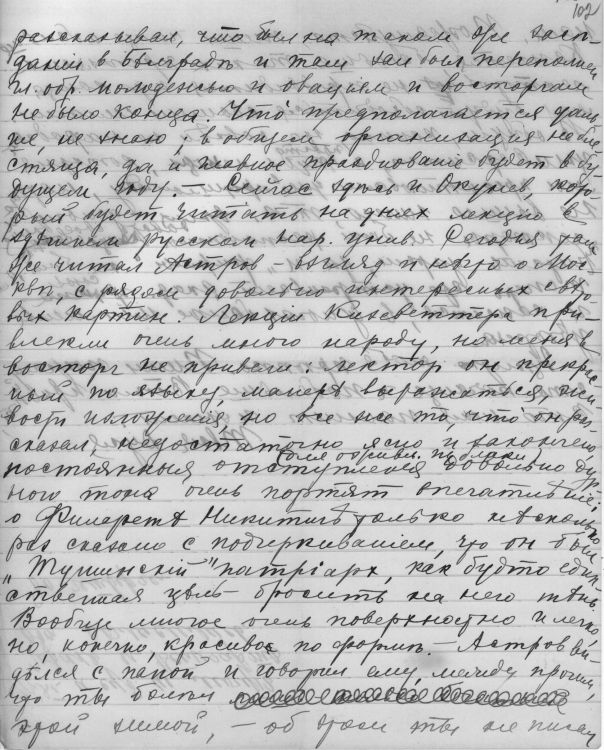 102
рассказывал, что был на таком же засѣ-
данiи в Бѣлградѣ и там зал был переполнен
и. обр. молодежью и овацiям и восторгам
не было конца. Что предполагается даль-
ше, не знаю; в общем организация не бле-
стяща, да и главное празднование будет в бу-
дущем году. — Сейчас здесь и Окунев, кото-
рый будет читать на днях лекцию в
здѣшнем русском нар. унив. Сегодня там
же читал Астров — взгляд и нѣчто о Мос-
квѣ, с рядом довольно интересных свѣто-
вых картин. Лекцiи Кизеветтера при-
влекли очень много народу, но меня в
восторг не привели: лектор он прекрас-
ный по языку, манерѣ выражаться, жи-
вости изложения, но все же то, что он рас-
сказал, недостаточно ясно и закончено,
постоянныя отступления довольно дур-
ного тона очень портят впечатлѣнiе;
о Филаретѣ Никитичѣ только нѣсколько
раз сказано с подчеркиванiем, что он был
„Тушинскiй" патрiарх, как будто един-
ственная цѣль — бросить на него тѣнь.
Вообще многое очень поверхностно и легко,
но, конечно, красиво по формѣ. — Астров ви-
дѣлся с папой и говорил ему, между прочим,
что ты болѣл
этой зимой, — об этом ты не писал